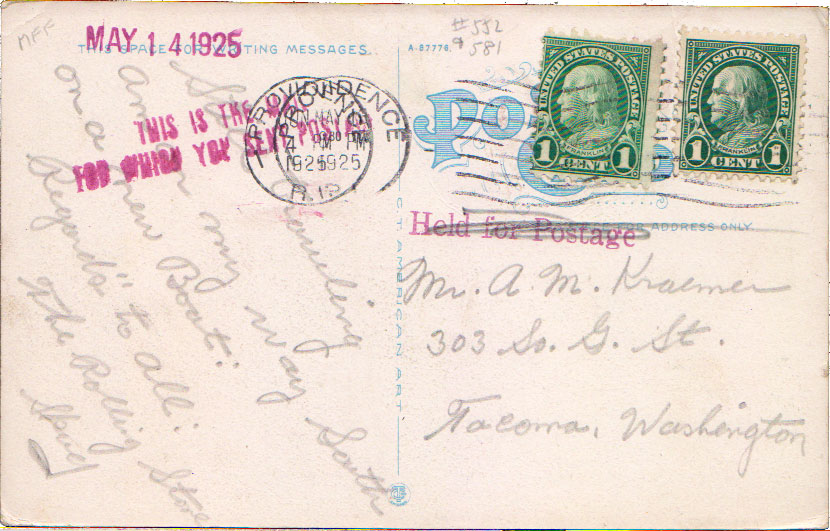 MFF
MAY 14 1925
THIS SPACE FOR WRITING MESSAGES.
A-87776.
#552
#581
THIS IS THE
FOR WHICH YOU SENT POSTAGE
PROVIDENCE
MAY
4 PM
1925
R.I.
PROVIDENCE
PM
1925
UNITED STATES POSTAGE
FRANKLIN
1 CENT 1
UNITED STATES POSTAGE
FRANKLIN
1 CENT 1
Held for Postage
FOR ADDRESS ONLY.
Still Traveling
am on my way South
on a "new Boat".
Regards" to all.
"The Rolling Stone
C.T. AMERICAN ART
Mr. A. M. Kraemer
303 So. G. St.
Tacoma, Washington